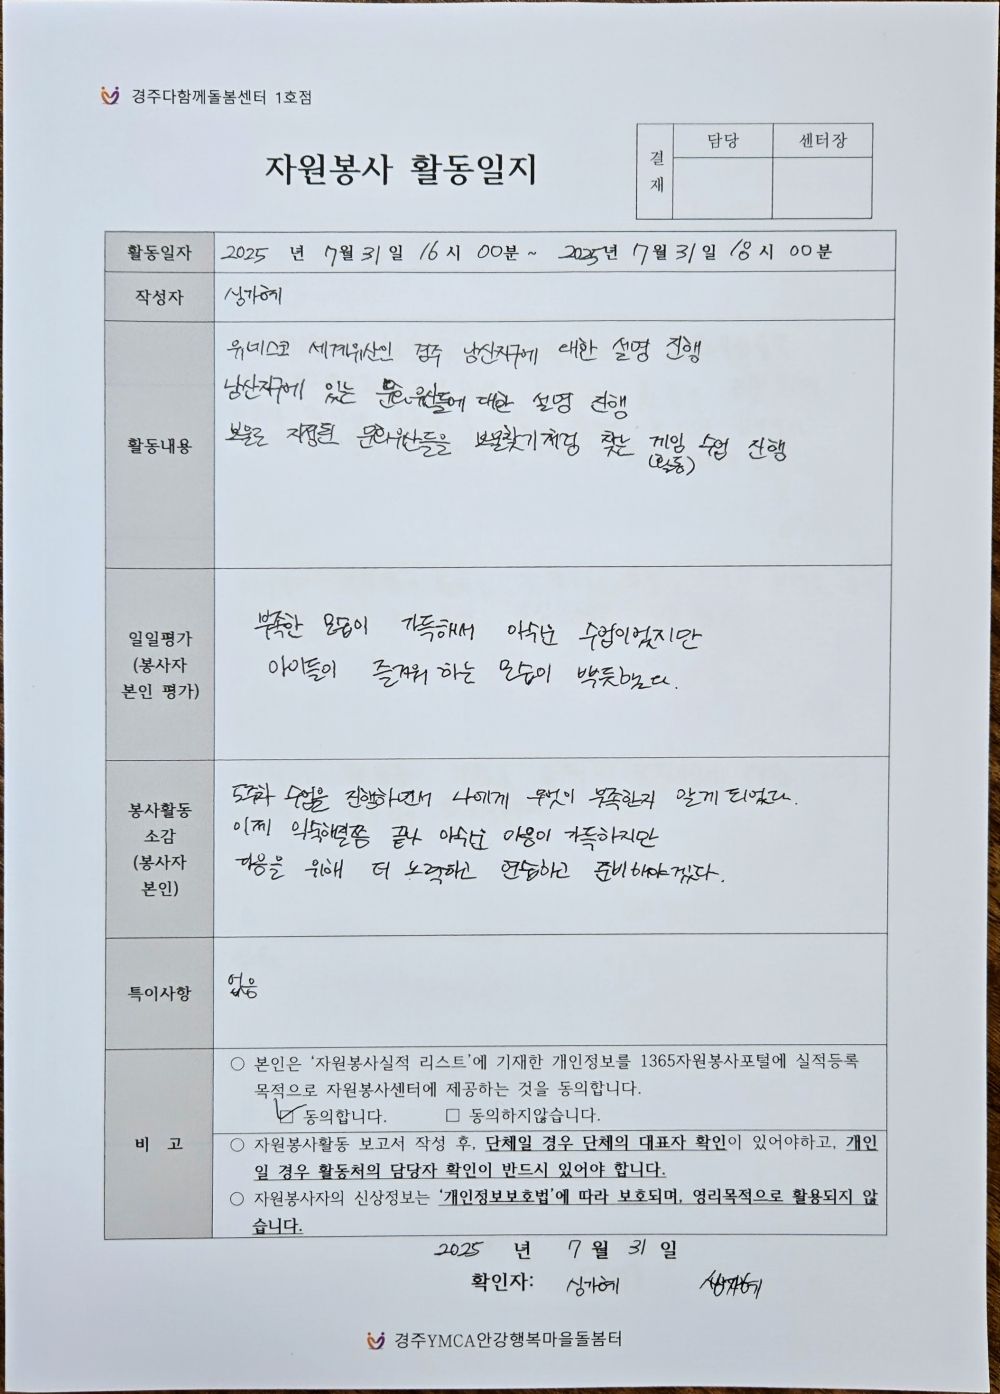 경주다함께돌봄센터 1호점
자원봉사 활동일지
결재
담당
센터장
활동일자
2025 년 7월 31일 16시 00분 ~ 2025년 7월 31일 18시 00분
작성자
심가혜
활동내용
유네스코 세계유산인 경주 남산지구에 대한 설명 진행
남산지구에 있는 문화유산들에 대한 설명 진행
보물로 지정된 문화유산들을 보물찾기처럼 찾는 게임 수업 진행
(활동)
일일평가
(봉사자
본인 평가)
부족한 모습이 가득해서 아쉬운 수업이었지만
아이들이 즐거워 하는 모습이 뿌듯했다.
봉사활동
소감
(봉사자
본인)
5주차 수업을 진행하면서 나에게 무엇이 부족한지 알게 되었다.
이제 익숙해질쯤 끝나 아쉬운 마음이 가득하지만
다음을 위해 더 노력하고 연습하고 준비해야겠다.
특이사항
없음
비 고
○ 본인은 ‘자원봉사실적 리스트’에 기재한 개인정보를 1365자원봉사포털에 실적등록
목적으로 자원봉사센터에 제공하는 것을 동의합니다.
☑ 동의합니다. □ 동의하지않습니다.
○ 자원봉사활동 보고서 작성 후, 단체일 경우 단체의 대표자 확인이 있어야하고, 개인
일 경우 활동처의 담당자 확인이 반드시 있어야 합니다.
○ 자원봉사자의 신상정보는 ‘개인정보보호법’에 따라 보호되며, 영리목적으로 활용되지 않
습니다.
2025 년 7월 31일
확인자: 심가혜
경주YMCA안강행복마을돌봄터